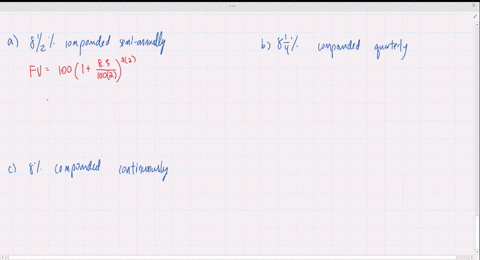 a) 8 1/2 % compounded semi-annually
FV = 100 (1 + 8.5/100(2))^3(2)
b) 8 1/4 % compounded quarterly
c) 8% compounded continuously